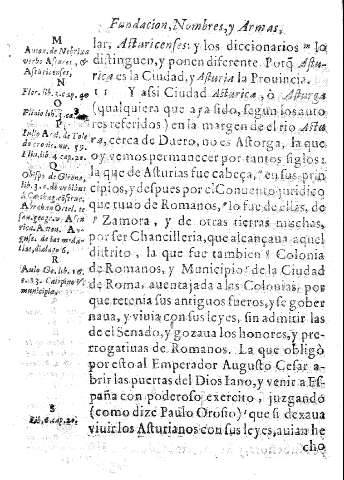 Fundacion, Nombres, y Armas,
M
Anton. de Nebrixa
verbo Astures, &
Asturicenses,
N
Flor. lib. 4. cap.
O
Plinio lib. 3. ca.
P
lib. 4. cap. 20.
Obispo de Girona,
lib. 1.
Abrahan Ortel.
R
Aulo Ge. lib. 16.
c. 13. Calepino V.
municipium,
S
Lib. 6. cap. 20.
lar, Astaricenses: y los diccionarios m lo
distinguen, y ponen diferente. Porq̃ Astu-
rica es la Ciudad, y Asturia la Prouincia.
11 Y assi Ciudad Astarica, ò Asturga
(qualquiera que aya sido, segun los auto
res referidos) en la margen del rio Astu
ra, cerca de Duero, no es Astorga, la que
oy vemos permanecer por tantos siglos:
la que de Asturias fue cabeça, n en sus prin
cipios, y despues por el Conuento juridico
que tuuo de Romanos, o lo fue de ellas, de
p Zamora, y de otras tierras muchas,
por ser Chancilleria, que alcançaua aquel
distrito, la que fue tambien q Colonia
de Romanos, y Municipio r de la Ciudad
de Roma, auentajada a las Colonias, por
que retenia sus antiguos fueros, y se gober
naua, y viuia con sus leyes, sin admitir las
de el Senado, y gozaua los honores, y pre-
rrogatiuas de Romanos. La que obligò
por esto al Emperador Augusto Cesar a-
brir las puertas del Dios Iano, y venir a Es-
paña con poderoso exercito, juzgando
(como dize Paulo Orosio) s que si dexaua
viuir los Asturianos con sus leyes, auian he
cho